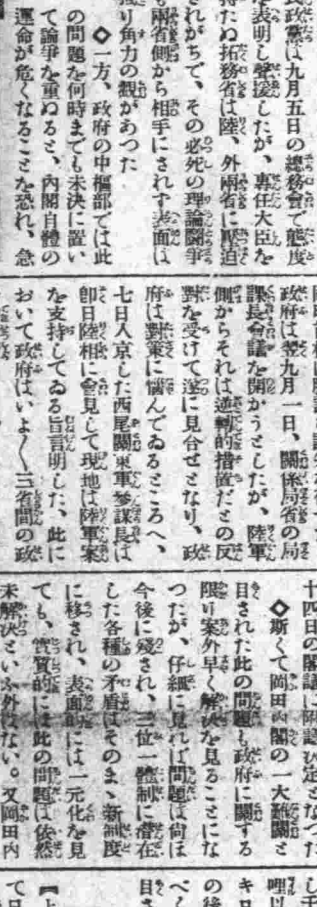 民政黨は九月五日の總務會で態度
を表明し聲援したが、專任大臣を
持たぬ拓務省は陸、外兩省に壓迫
されがちで、その必死の理論鬪爭
も兩省側から相手にされず表面は
獨り角力の觀があつた
◇一方、政府の中樞部では此
の問題を何時までも未決に置い
て論爭を重ぬると、內閣自體の
運命が危くなることを恐れ、急
政府は翌九月一日、關係局省の局
課長會議を開かうとしたが、陸軍
側からそれは逆轉的措置だとの反
對を受けて遂に見合せとなり、政
府は對策に惱んでゐるところへ、
七日入京した西尾關東軍參謀長は
卽日陸相に會見して現地は陸軍案
を支持してゐる旨言明した、此に
おいて政府はいよ〱三省間の政
十四日の閣議に附議決定となつた
◇斯くて岡田內閣の一大難關と
目された此の問題も政府に關する
限り案外早く解決を見ることにな
つたが、仔細に見れば問題は尙ほ
今後に殘され、三位一體制に潛在
した各種の矛盾はそのまゝ新制度
に移され、表面的には一元化を見
ても、實質的には此の問題は依然
未解決といふ外はない。又岡田內
し千
哩以
キロ
の後
べく
日さ
【上
て日